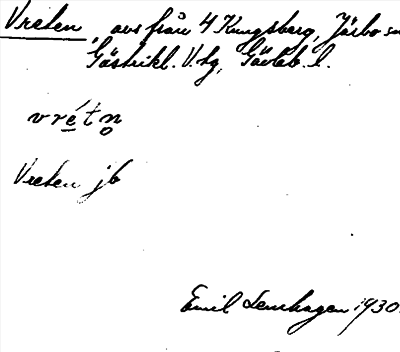 Vreten, avs från 4 Kungsberg, Järbo sn
Gästrikl. V. tg, Gävleb. l.
vrétn̥
Vreten jb
Emil Lenhagen 1930.